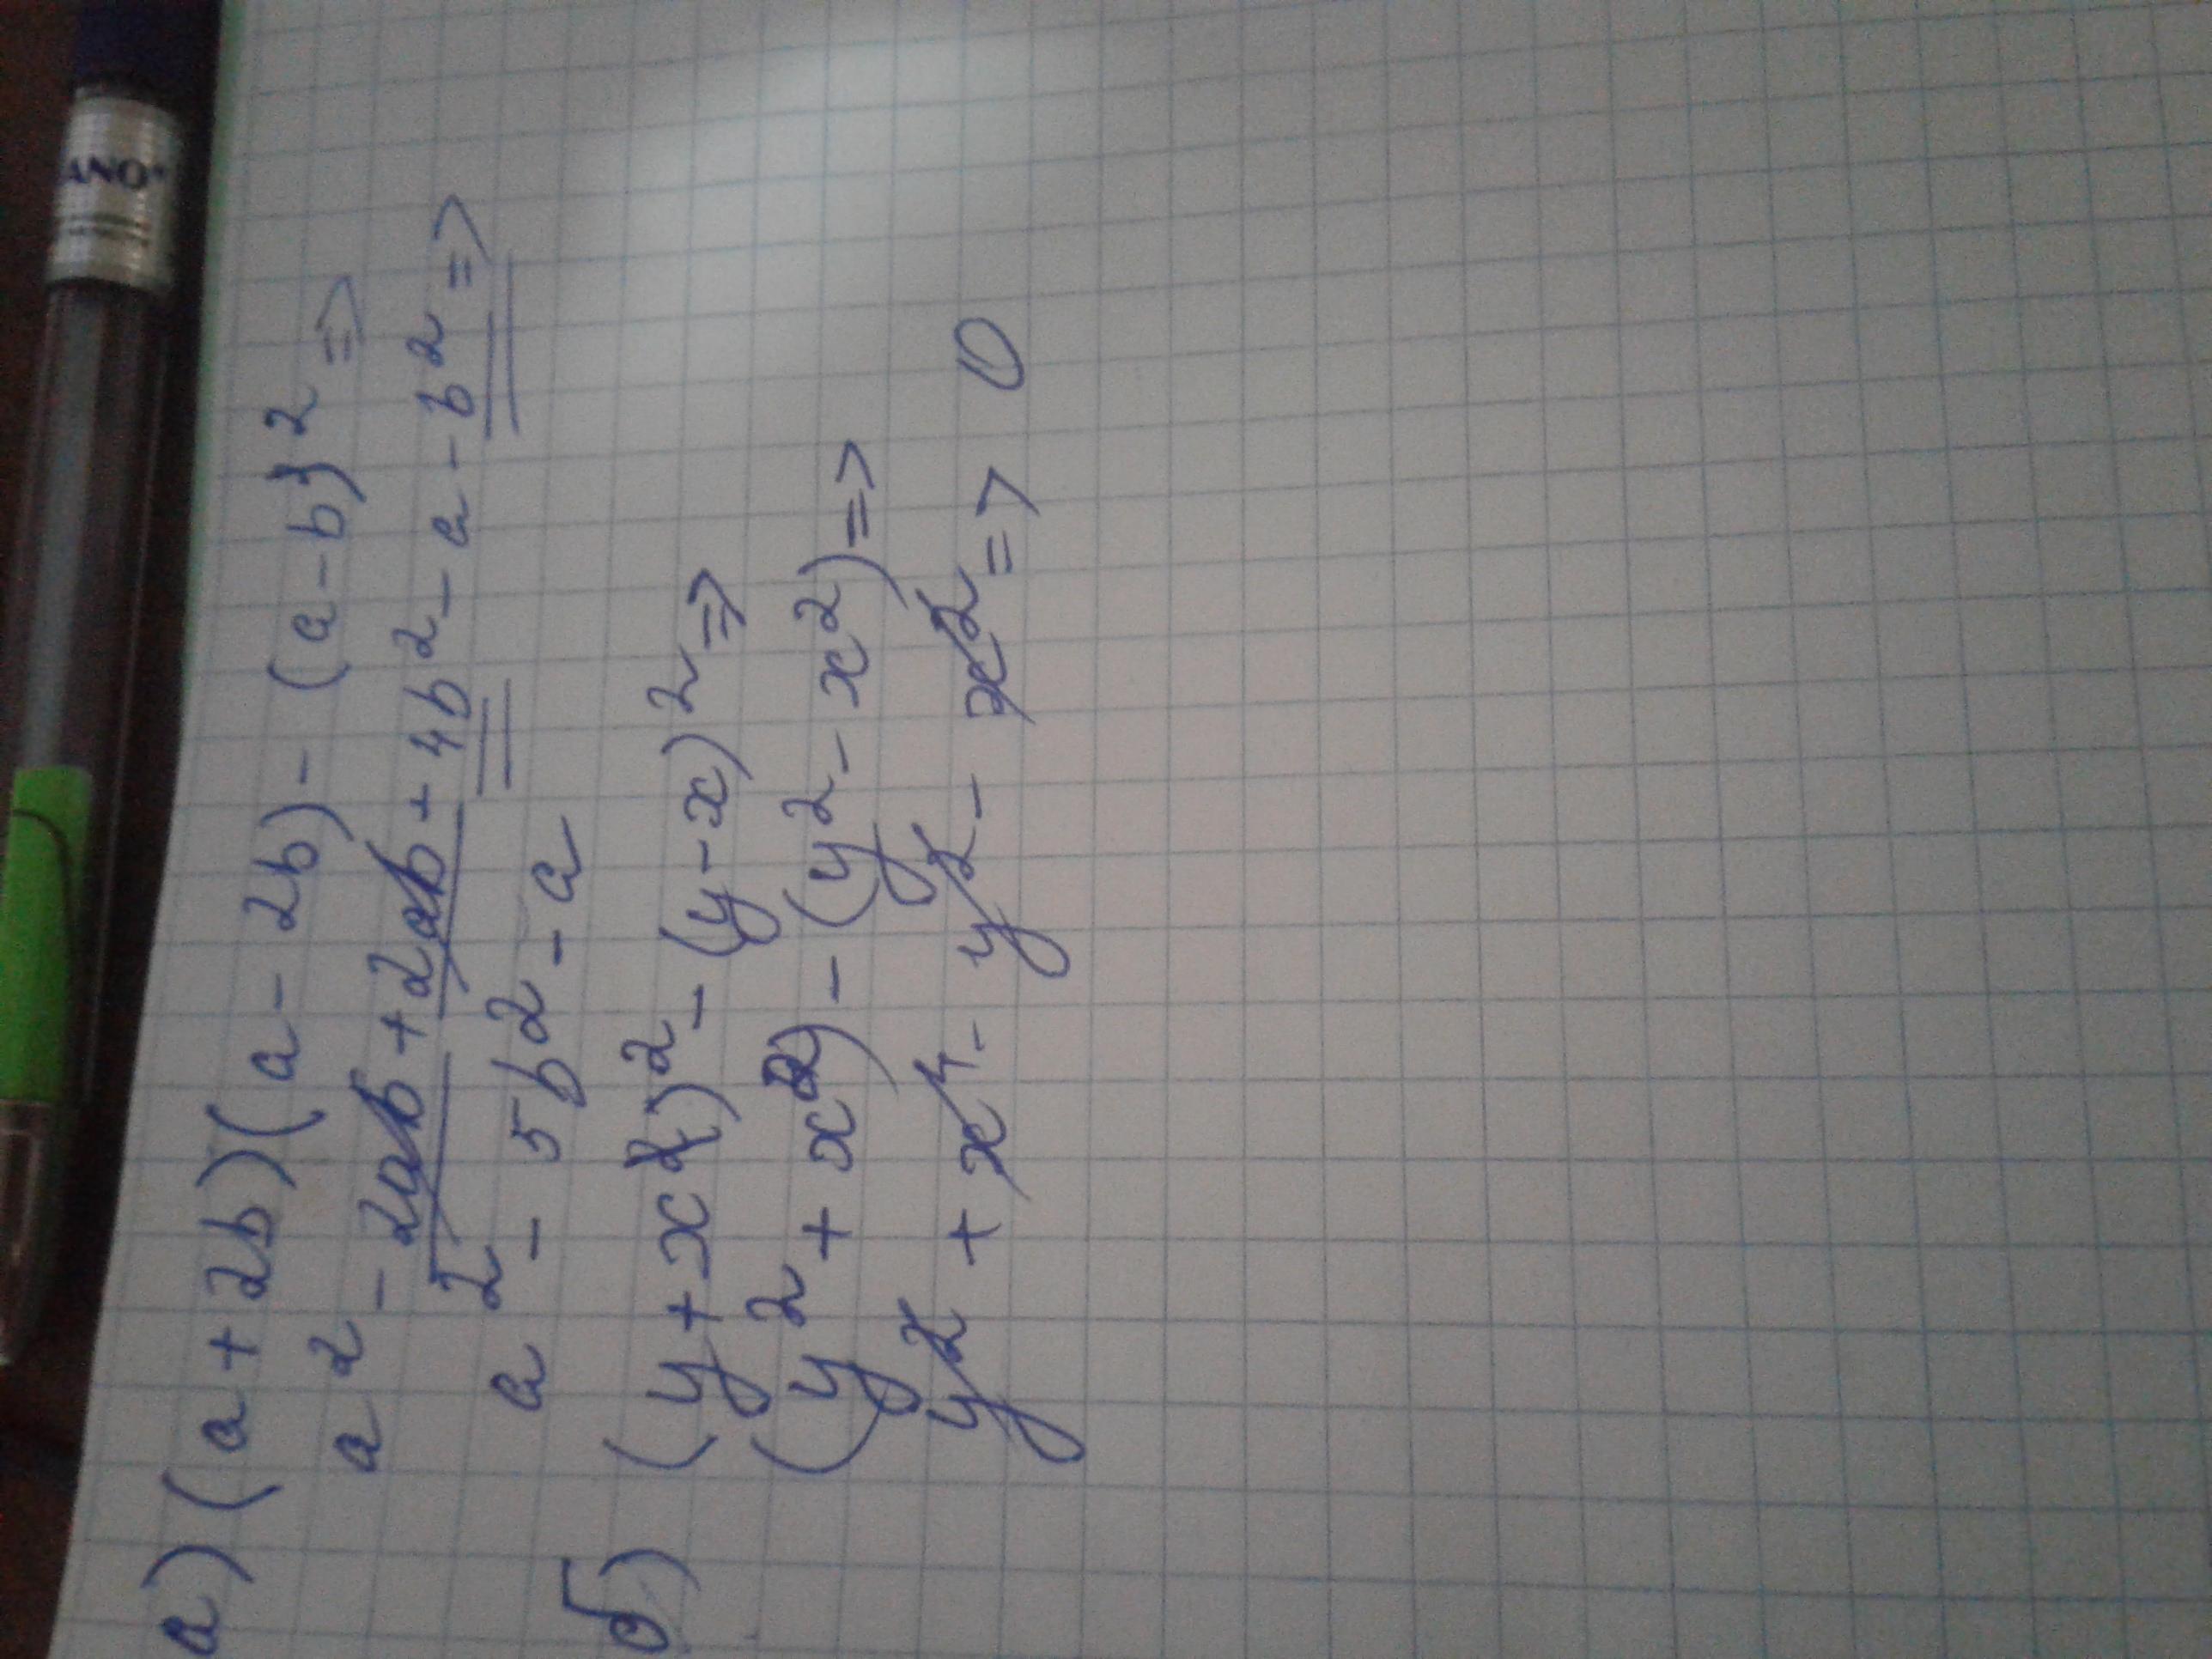 ANO
а) (a+2b)(a-2b)-(a-b)²=>
a²-2ab+2ab+4b²-a-b²=>
a²-5b²-a
б) (y+x)²-(y-x)²=>
(y²+x²)-(y²-x²)=>
y²+x⁴-y²-x²=> 0